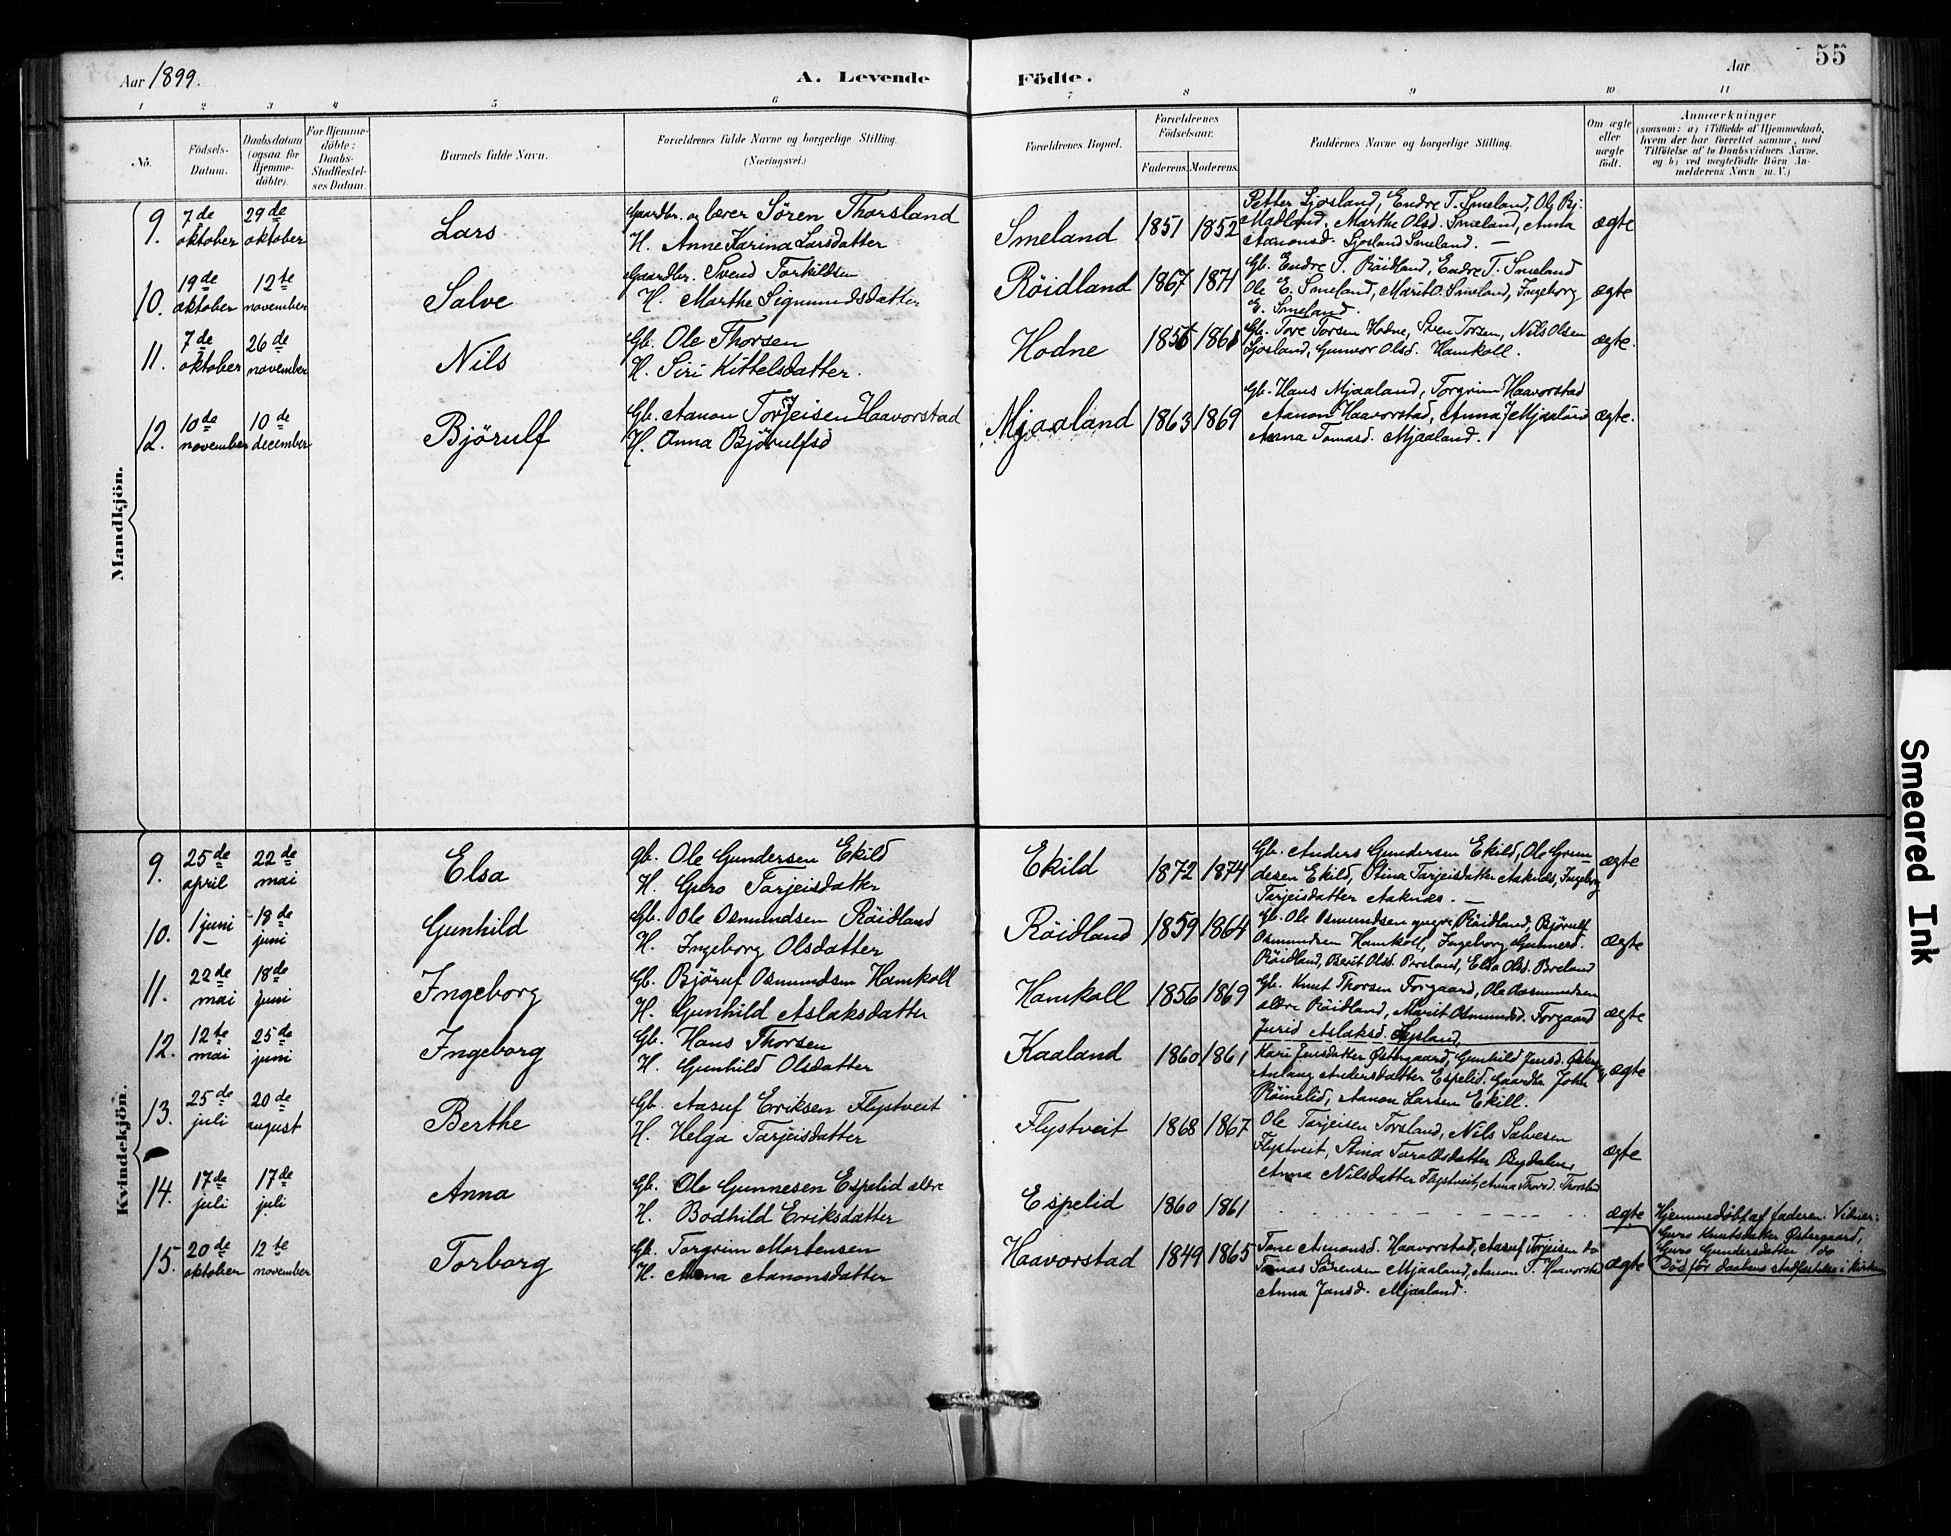 Aar 1899.
A. Levende Födte.
Aar
55
1 2 3 4 5 6 7 8 9 10 11
No.
Födsels-Datum.
Daabsdatum (ogsaa for Hjemme-döbte).
For Hjemme-döbte: Daabs-Stadfæstel-ses Datum.
Barnets fulde Navn.
Forældrenes fulde Navne og borgerlige Stilling. (Næringsvei.)
Forældrenes Bopæl.
Forældrenes Födselsaar.
Faderens. Moderens.
Faddernes Navne og borgerlige Stilling.
Om ægte eller uægte födt.
Anmærkninger
(saasom: a) i Tilfælde af Hjemmedaab,
hvem der har forrettet samme, med
Tilföielse af to Daabsvidners Navne,
og b) ved uægtefödte Börn An-
melderens Navn m. V.)
Mandkjön.
9. 7de oktober 29de oktober Lars
Gaardbr. og lærer Sören Thorsland
H. Anne Karina Larsdatter
Smeland 1851 1852
Petter Ljosland, Endre T. Smeland, Ol Bj:
Madland, Marthe Olsd. Smeland, Anna
Aanonsd. Ljosland Smeland. —
ægte
10. 19de oktober 12te november Salve
Gaardbr. Svend Torkildsen
H. Marthe Sigmundsdatter
Röidland 1867 1871
Gb. Endre T. Röidland, Endre T. Smeland
Ole E. Smeland, Marit O. Smeland, Ingeborg
E. Smeland.
ægte
11. 7de oktober 26de november Nils
Gb. Ole Thorsen
H. Siri Kittelsdatter.
Hodne 1856 1861
Gb. Tore Torsen Hodne, Sven Torsen, Nils Olsen
Ljosland, Gunvor Olsd. Hamkoll.
ægte.
12. 10de november 10de december Björulf
Gb. Aanon Torjeisen Haavorstad
H. Anna Björulfsd
Mjaaland 1863 1869
Gb. Hans Mjaaland, Torgrim Haavorstad
Aanon Haavorstad, Anna J Mjaaland
Anna Tomasd. Mjaaland.
ægte.
Kvindekjön.
9. 25de april 22de mai Elsa
gb. Ole Gundersen Ekild
H. Guro Tarjeisdatter
Ekild 1872 1874
Gb. Anders Gundersen Ekild, Ole Gun-
dersen Ekild, Stina Tarjeisdatter Aaknes, Ingeborg
Tarjeisdatter Aaknes. —
ægte
10. 1 juni 18de juni Gunhild
Gb. Ole Osmundsen Röidland
H. Ingeborg Olsdatter
Röidland 1859 1864
Gb. Ole Osmundsen yngre Röidland, Björulf
Osmundsen Hamkoll, Ingeborg Gunnersd.
Röidland, Berit Olsd. Breland, Elsa Olsd. Breland
ægte
11. 22de mai 18de juni Ingeborg
Gb. Björuf Osmundsen Hamkoll
H. Gunhild Aslaksdatter
Hamkoll 1856 1869
Gb. Knut Thorsen Forgaard, Ole Aasmundsen
ældre Röidland, Marit Osmundsd. Forgaard
Jurid Aslaksd. Lysland,
ægte
12. 12te mai 25de juni Ingeborg
Gb. Hans Thorsen
H. Gunhild Olsdatter
Kaaland 1860 1861
Kari Jensdatter Østergaard, Gunhild Jensd.
Aslaug Andersdatter Espelid. Gaardbr. John
Röinelid, Aanon Larsen Ekill.
ægte
13. 25de juli 20de august Berthe
Gb. Aasuf Eriksen Flystveit
H. Helga Tarjeisdatter
Flystveit 1868 1867
Ole Tarjeisen Torsland, Nils Salvesen
Flystveit, Stina Taraldsdatter Bydalen,
Anna Nilsdatter Flystveit, Anna Thorsd. Thorsland
ægte
14. 17de juli 17de juli Anna
Gb. Ole Gunnesen Espelid ældre
H. Bodhild Eriksdatter
Espelid 1860 1861
ægte
Hjemmedøbt af faderen. Vidner:
Guro Knutsdatter Østergaard,
Guro Gundersdatter do
Död för daabens stadfæstelse i kirken
15. 20de oktober 12te november Torborg
Gb. Torgrim Mortensen
H. Anna Aanonsdatter
Haavorstad 1849 1865
Tone Aanonsd. Haavorstad, Aasuf Torjeisen do
Tomas Sörensen Mjaaland, Aanon T. Haavorstad
Anna Jansd. Mjaaland.
ægte
Smeared Ink